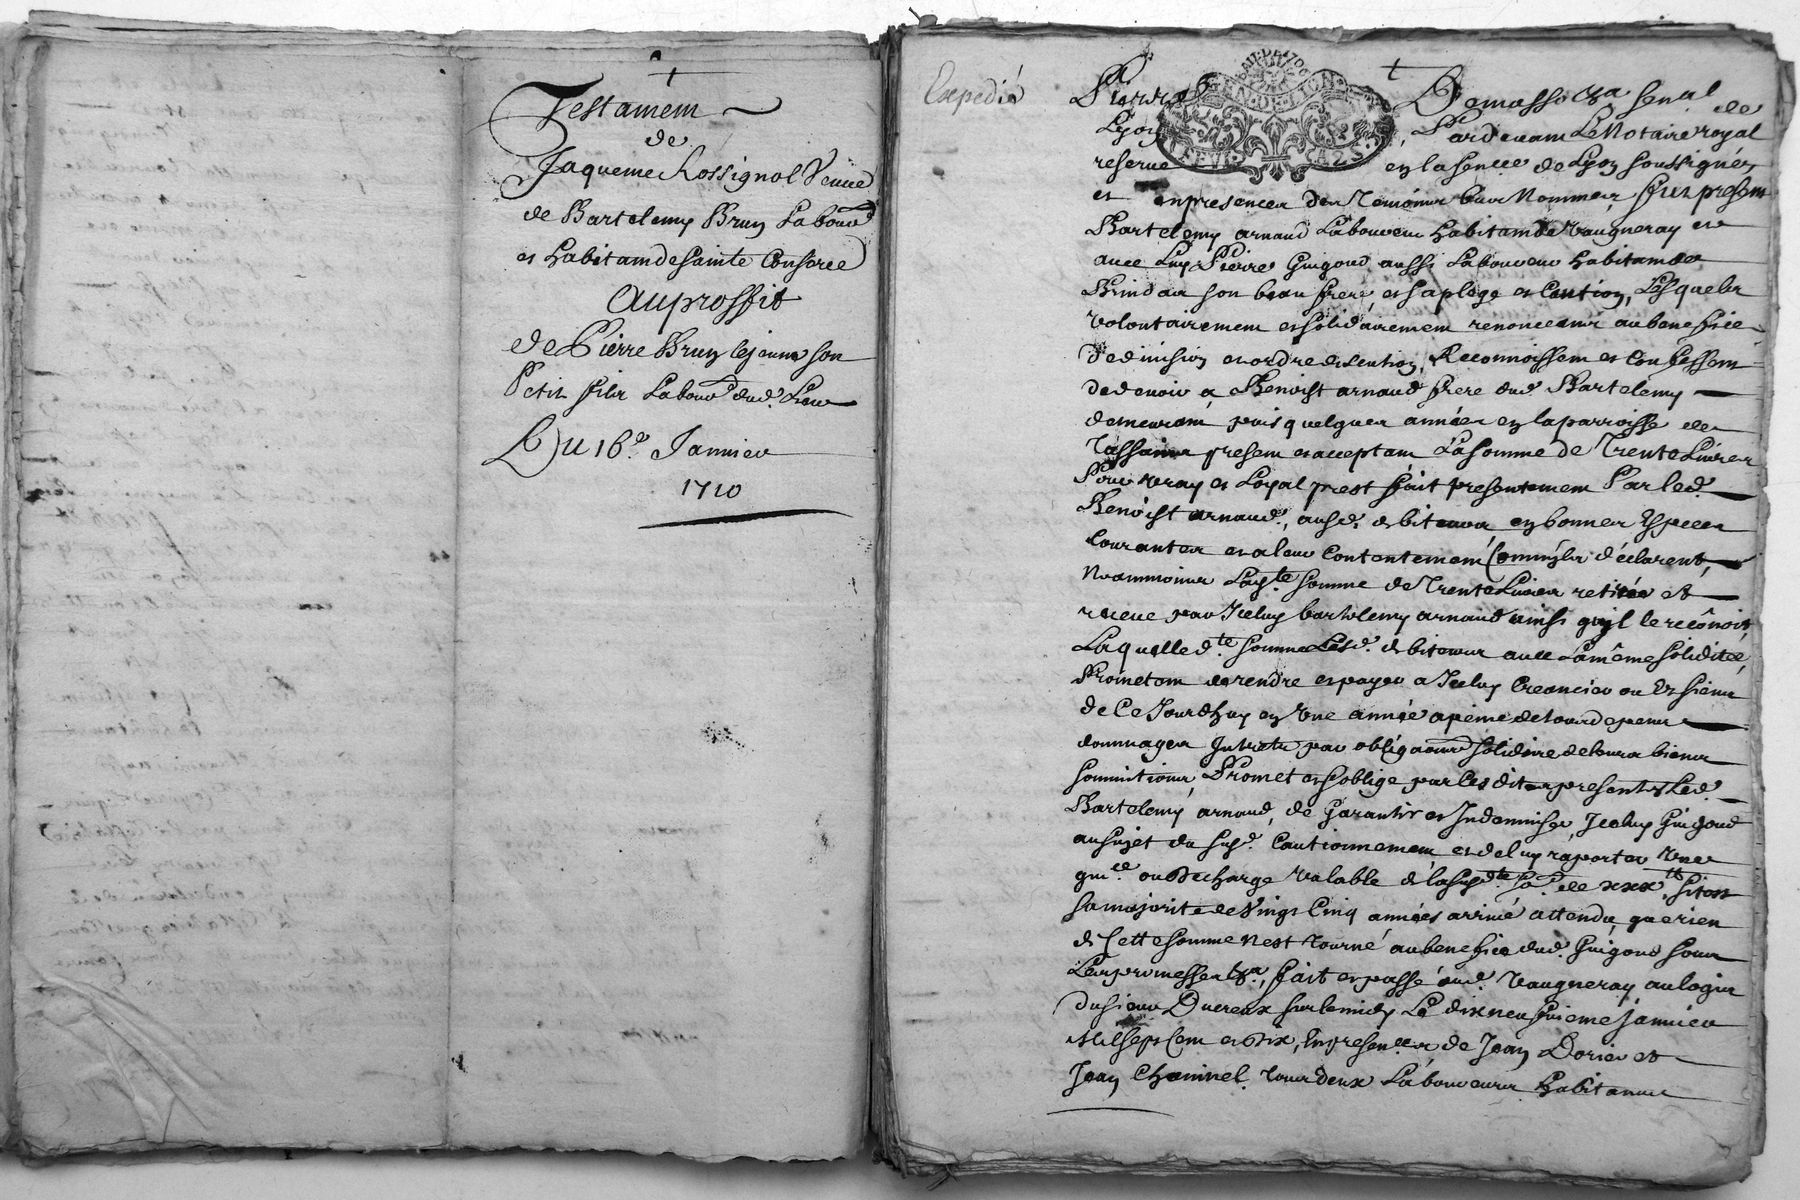 Testament
de
Jaqueme Rossignol Veuve
de Bartelemy Brun Labour
et habitam de Sainte Consorce
Au proffit
de Pierre Brun le jeune son
Petit fils Labour dud. Lieu
Du 16e Janvier
1710
Expedié
Pierre Demasso &a senal de
Lyon Pardevant Le Notaire royal
reservé en la senecee de Lyon soussignés
et en presence des Temoins bas Nommez fut present
Bartelemy arnaud Laboureur habitam de Vaugneray et
avec Luy Pierre Guigoud aussi Laboureur habitam de
Brindas son beau frere, et sa plege et Caution, Lesquels
volontairement et solidairement renonceans au benefice
de division et ordre discution, Reconnoissent et Confessent
de devoir a Benoist arnaud frere dud. Bartelemy
demeurant puis quelques années en la parroisse de
Tassin present et acceptam La somme de Trente Livres
Pour vray et Loyal prest fait presentement Par led.
Benoist arnaud, ausd. debiteurs en bonnes Especes
Courantes et a leur Contentement Comm'ils déclarent,
Neanmoins Lad.te somme de Trente Livres retirée et
receue par Iceluy bartelemy arnaud ainsi qu'il le recônoit,
Laquelle d.te somme Lesd. debiteurs avec La même solidité,
Prometent de rendre et payer a Iceluy Creancier ou Es siens
de Ce Jourdhuy en Une année a peine de tous depens
dommages Interets par obligaõns solidaire de leurs biens
soumitions, Promet et s'oblige par Ces dites presentes Led.
Bartelemy arnaud, de Garantir et Indemniser Iceluy Guigoud
au sujet du susd. Cautionnement et de luy raporter Une
quice ou Decharge Valable de la susd.te sõe de xxx tt sitost
sa majorité de Vingt Cinq années arrivé attendu que rien
de Cette somme Nest tourné au benefice dud. Guigoud sous
Les promesses &a, fait et passé aud. Vaugneray au logis
du sieur Ducreux sur le midy Le dix neufvieme janvier
Mil sept Cent et Dix, En presences de Jean Dorier et
Jean Chaninel tous deux Laboureurs habitans